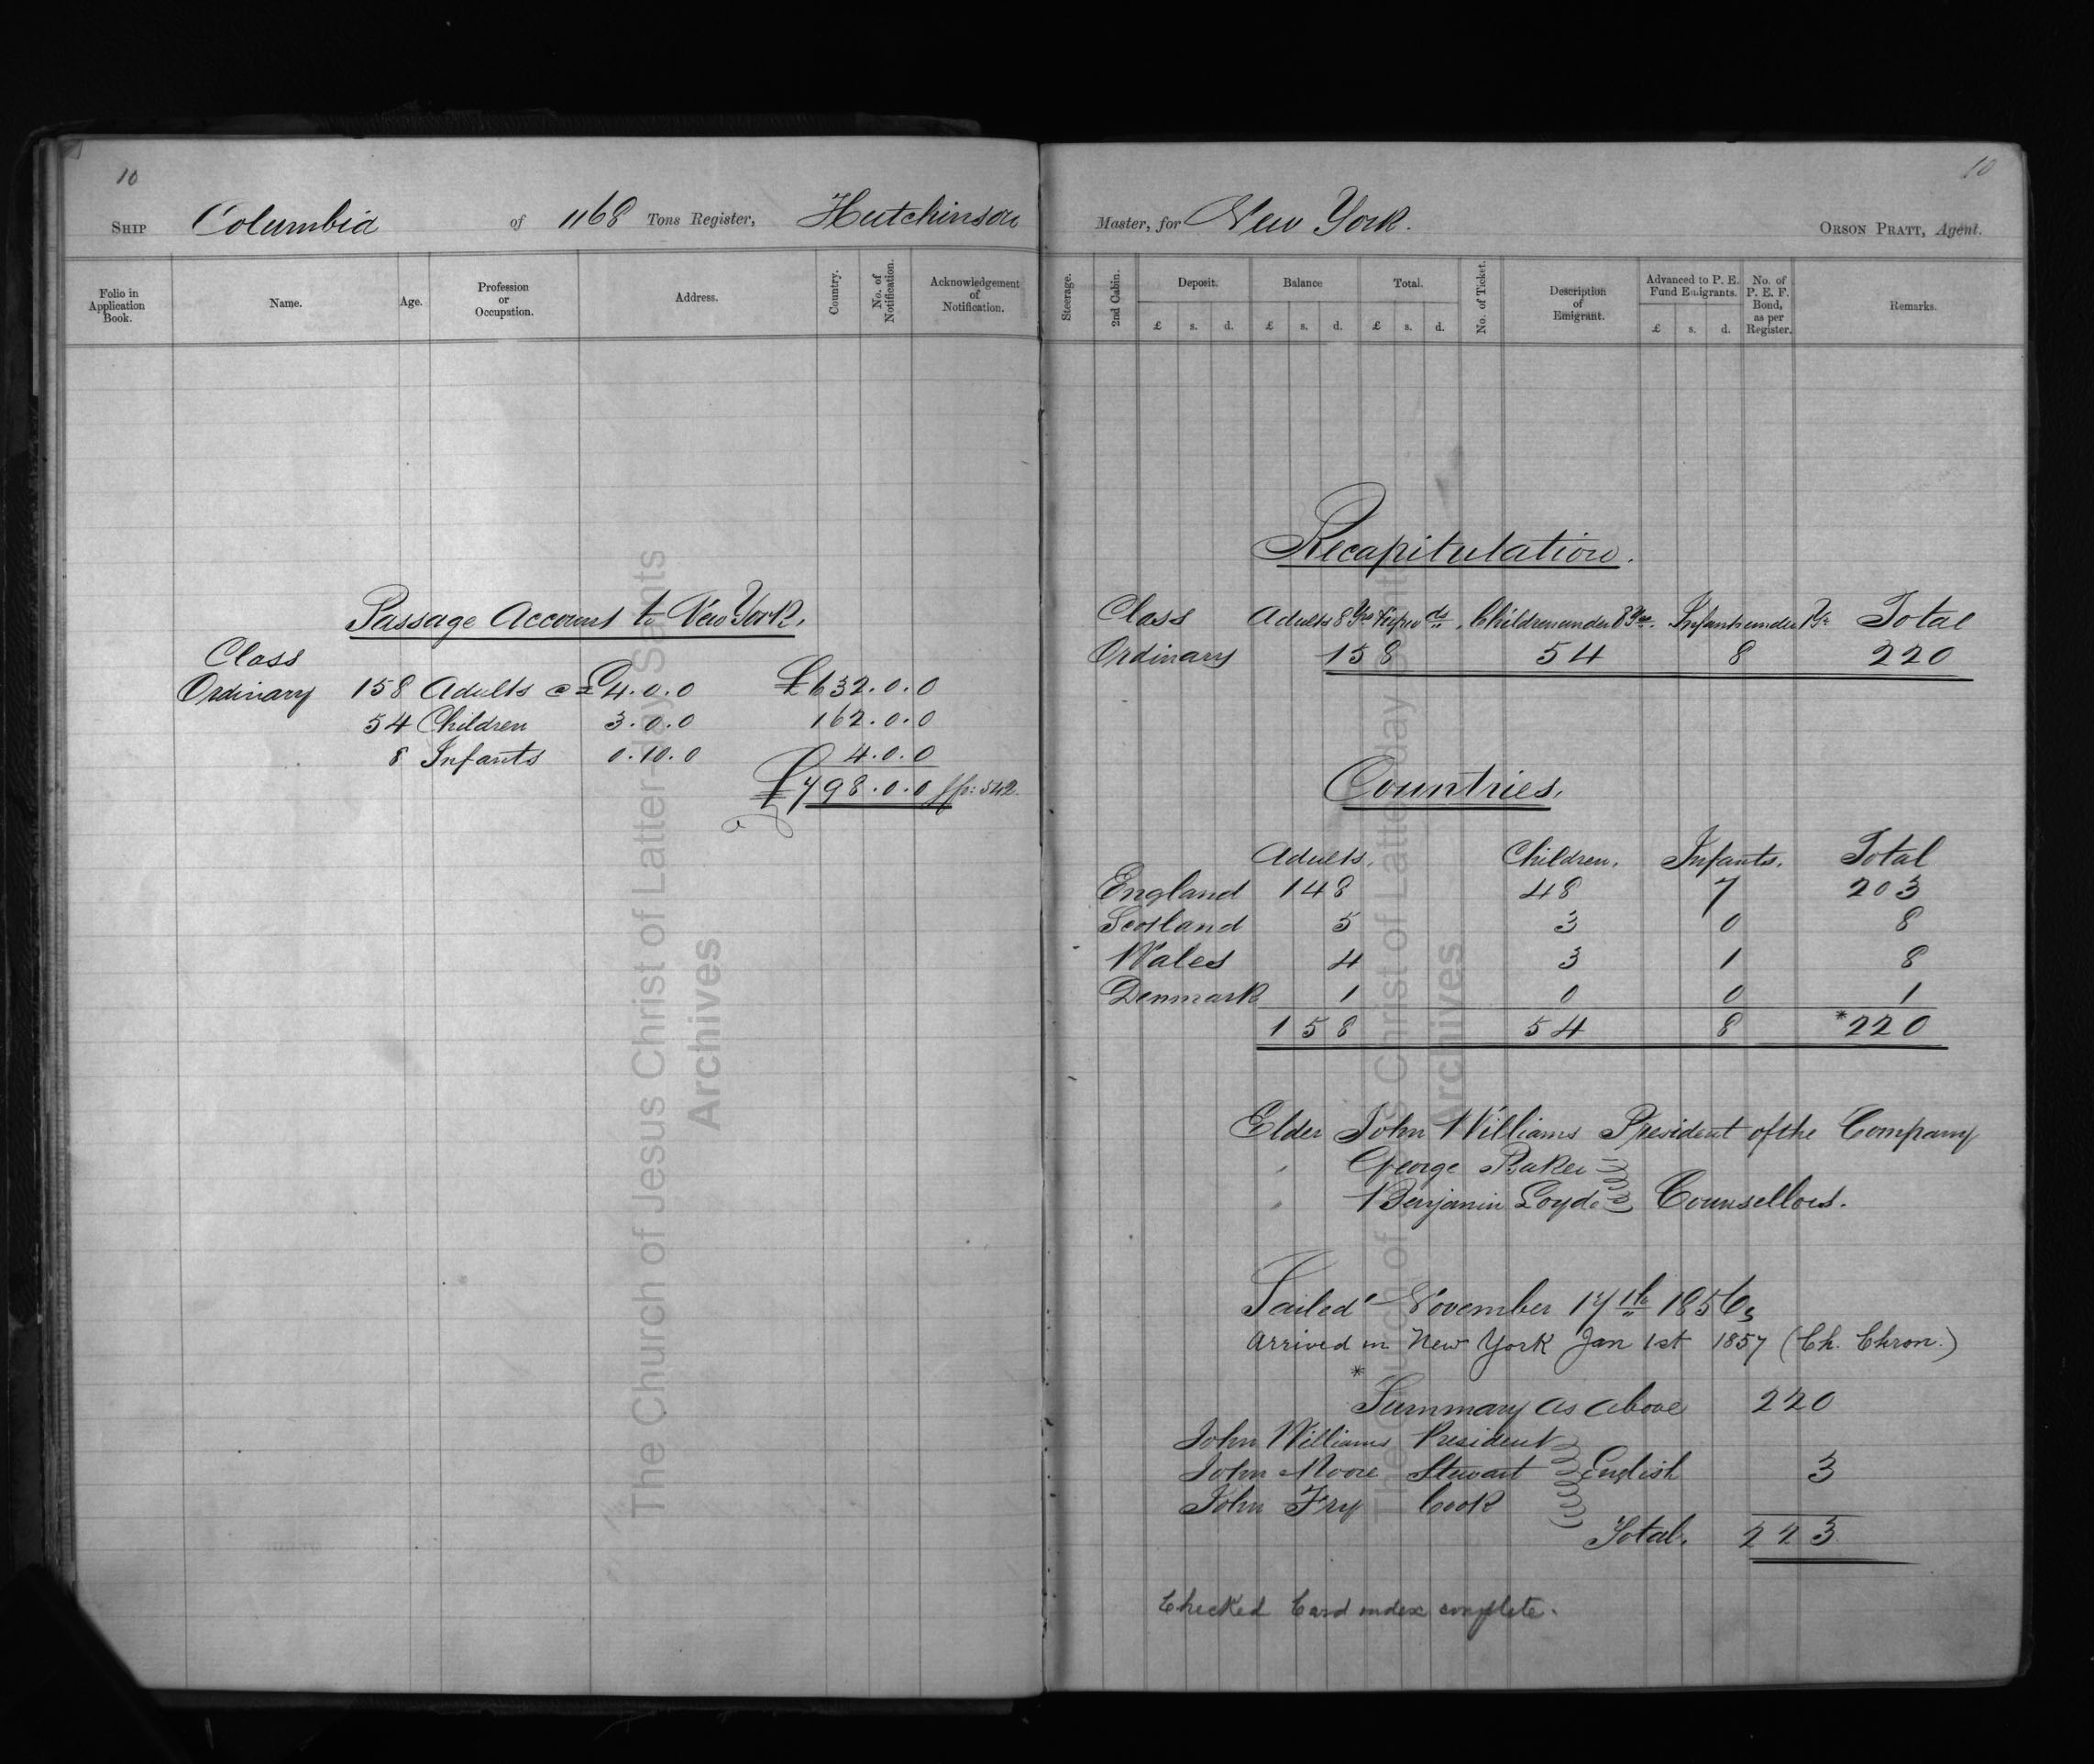 10
Ship Columbia of 1168 Tons Register, Hutchinson
Folio in Application Book. Name. Age. Profession or Occupation. Address. Country. No. of Notification. Acknowledgement of Notification.
Passage Account to New York.
Class
Ordinary 158 Adults @ £4.0.0 £632.0.0
54 Children 3.0.0 162.0.0
8 Infants 0.10.0 4.0.0
£798.0.0 542
The Church of Jesus Christ of Latter-day Saints
Archives
10
Master, for New York. Orson Pratt, Agent.
Steerage. 2nd Cabin. Deposit. Balance Total. No. of Ticket. Description of Emigrant. Advanced to P. E. Fund Emigrants. No. of P. E. F. Bond, as per Register. Remarks.
£ s. d. £ s. d. £ s. d. £ s. d.
Recapitulation.
Class Adults 8 Yrs & upwds. Children under 8 Yrs. Infants under 1 Yr. Total
Ordinary 158 54 8 220
Countries.
Adults. Children. Infants. Total
England 148 48 7 203
Scotland 5 3 0 8
Wales 4 3 1 8
Denmark 1 0 0 1
158 54 8 *220
Elder John Williams President of the Company
" George Baker
" Benjamin Loyd Counsellors.
Sailed November 17th 1856
Arrived in New York Jan 1st 1857 (Ch. Chron.)
*
Summary as above 220
John Williams President
John Moore Stewart English 3
John Fry Cook
Total. 223
Checked Card index complete.
The Church of Jesus Christ of Latter-day Saints
Archives